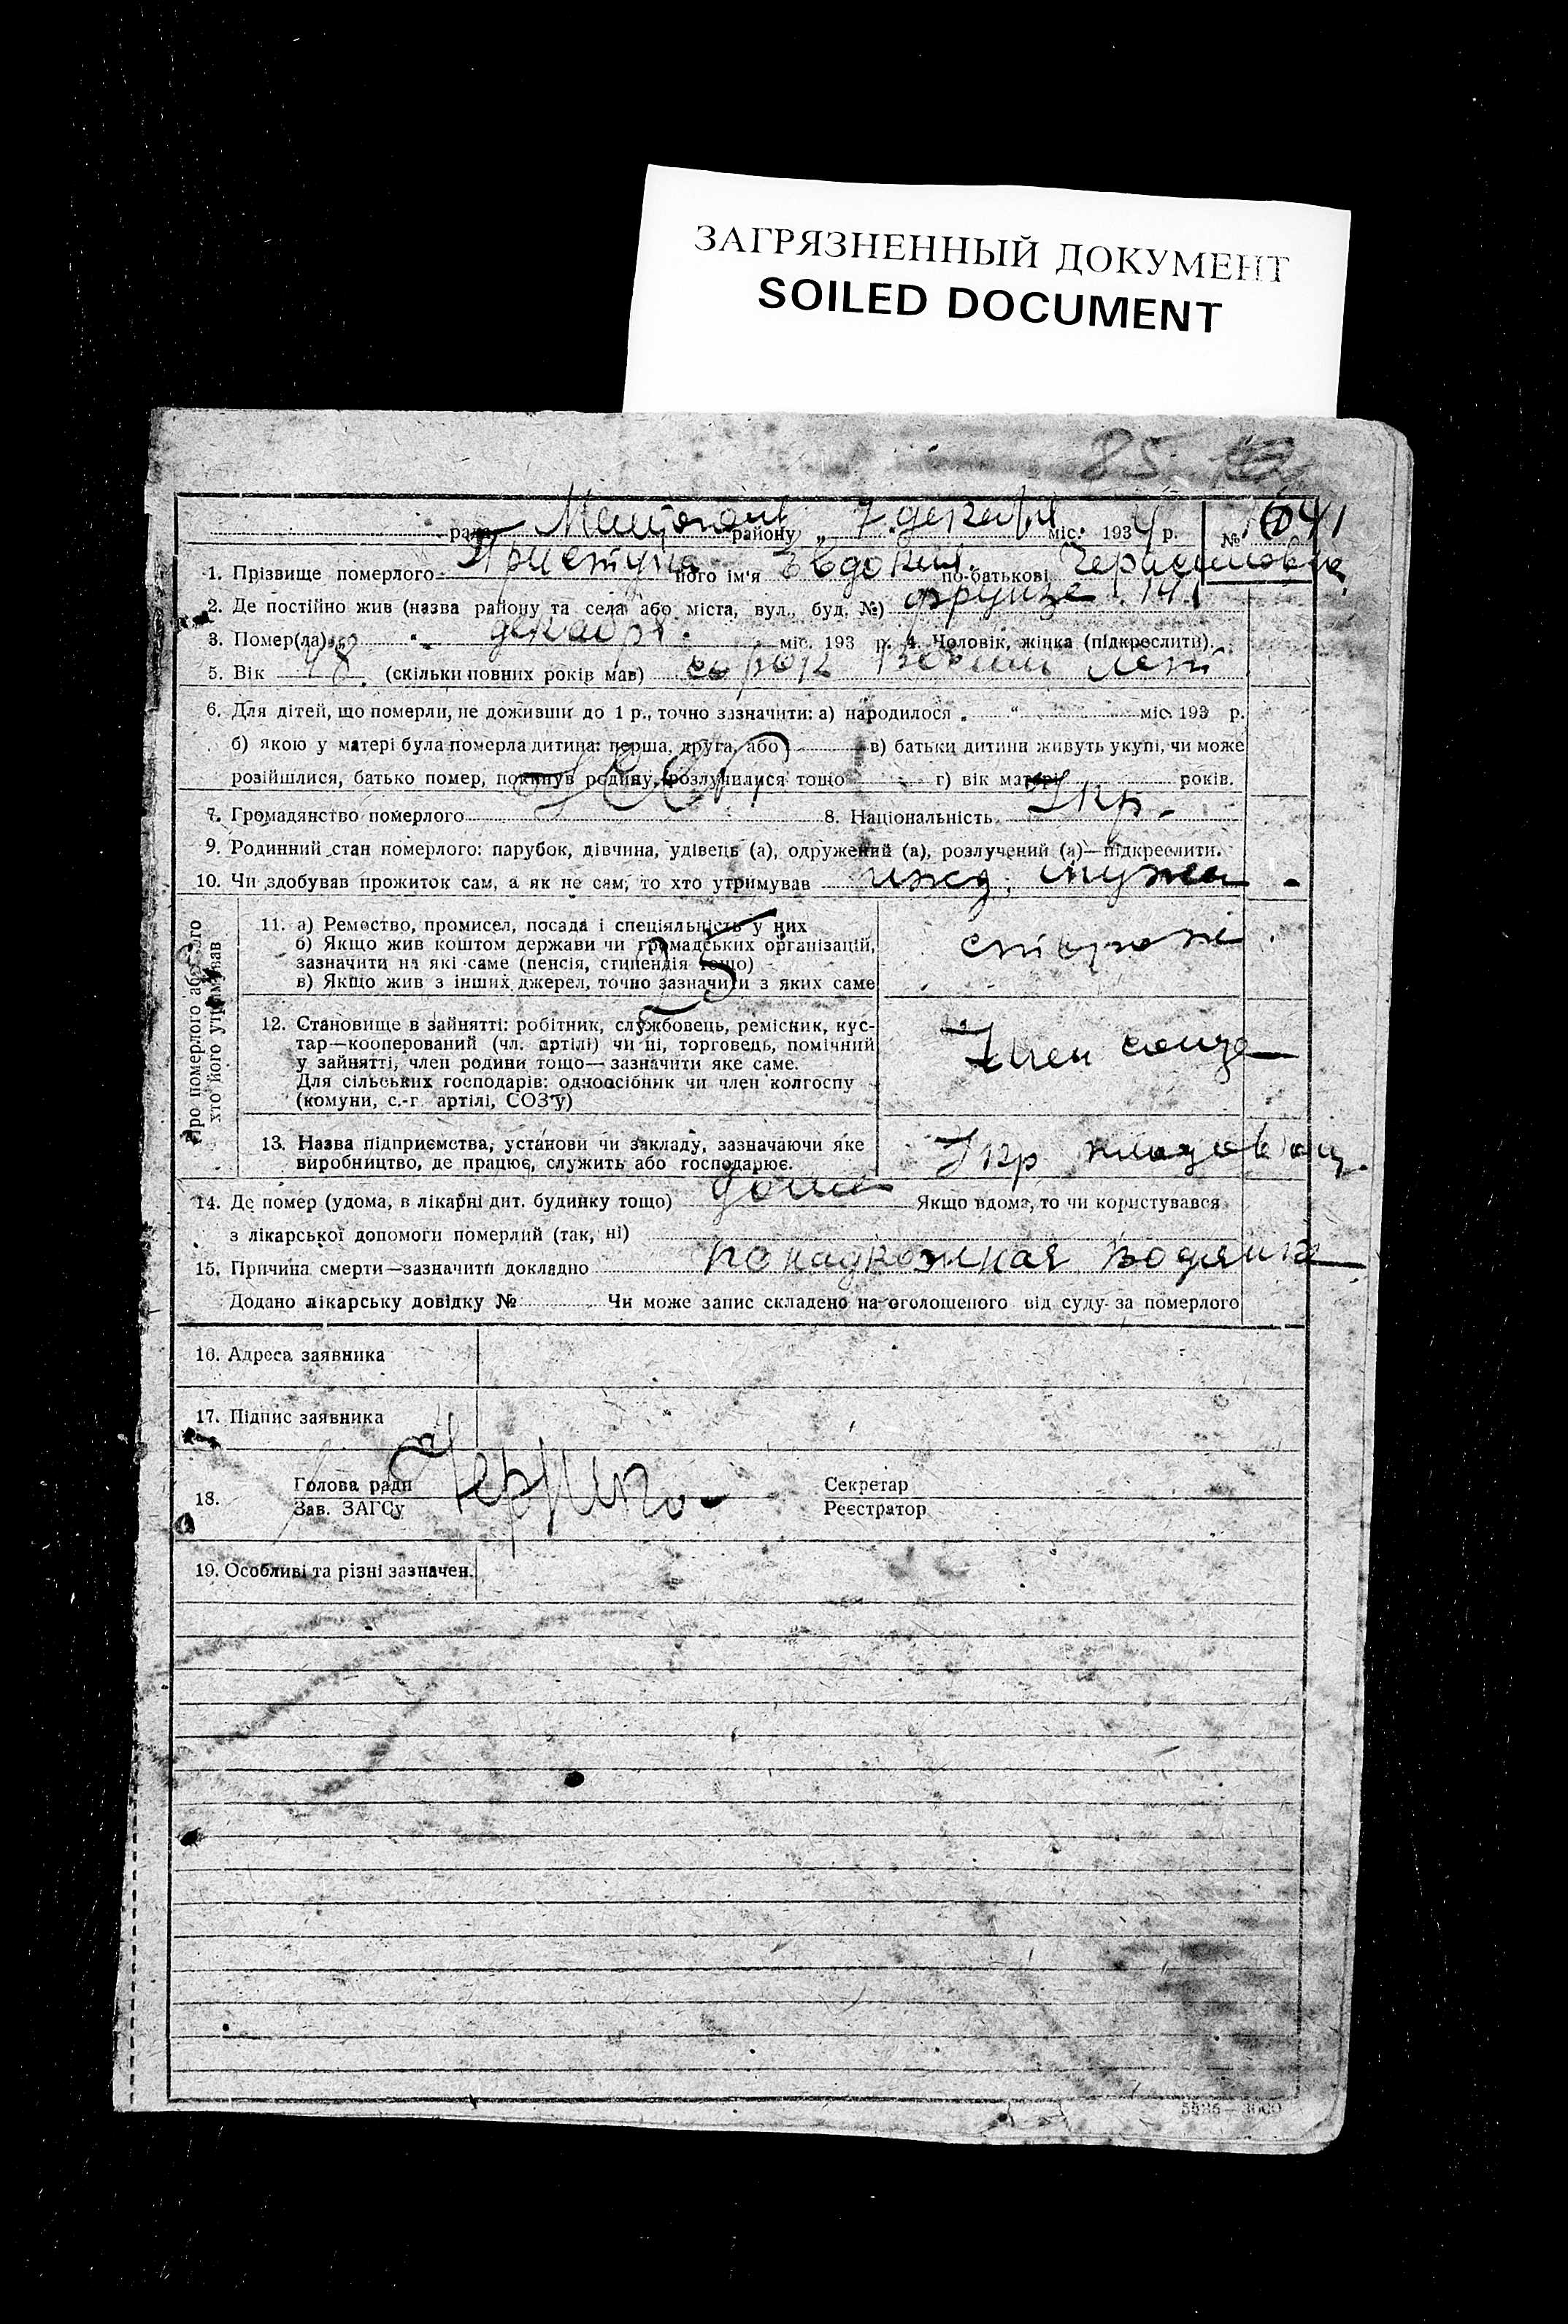 ЗАГРЯЗНЕННЫЙ ДОКУМЕНТ
SOILED DOCUMENT
85
рада району „ 7 " декабря міс. 1934 р. №
1. Прізвище померлого Приступа його ім'я Евдокия по-батькові
2. Де постійно жив (назва району та села або міста, вул., буд. №) Фрунзе 141
3. Помер(ла) „ " декабря міс. 193 р. 4. Чоловік, жінка (підкреслити).
5. Вік 48 (скільки повних років мав) сорок восем лет
6. Для дітей, що померли, не доживши до 1 р., точно зазначити: а) народилося „ " міс. 193 р.
б) якою у матері була померла дитина: перша, друга, або в) батьки дитини живуть укупі, чи може
розійшлися, батько помер, покинув родину, розлучилися тощо г) вік матері років.
7. Громадянство померлого УССР 8. Національність Укр.
9. Родинний стан померлого: парубок, дівчина, удівець (а), одружений (а), розлучений (а)—підкреслити.
10. Чи здобував прожиток сам, а як не сам, то хто утримував ижд. мужа
Про померлого або того
хто його утримував
11. а) Ремество, промисел, посада і спеціяльність у них
б) Якщо жив коштом держави чи громадських організацій,
зазначити на які саме (пенсія, стипендія тощо)
в) Якщо жив з інших джерел, точно зазначити з яких саме
25
сторож
12. Становище в зайнятті: робітник, службовець, ремісник, кус-
тар—кооперований (чл. артілі) чи ні, торговець, помічний
у зайнятті, член родини тощо— зазначити яке саме.
Для сільських господарів: одноосібник чи член колгоспу
(комуни, с.-г. артілі, СОЗ'у)
Член союза
13. Назва підприємства, установи чи закладу, зазначаючи яке
виробництво, де працює, служить або господарює.
Укр
14. Де помер (удома, в лікарні дит. будинку тощо) дома Якщо вдома, то чи користувався
з лікарської допомоги померлий (так, ні)
15. Причина смерти—зазначити докладно водянка
Додано лікарську довідку № Чи може запис складено на оголошеного від суду за померлого
16. Адреса заявника
17. Підпис заявника
18. Голова ради
Зав. ЗАГСу
Секретар
Реєстратор
19. Особливі та різні зазначен.
5535—3000